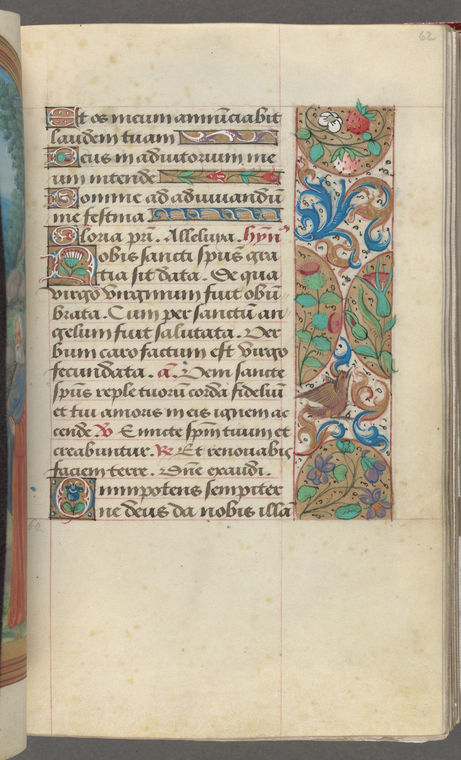 62
Et os meum annūciabit
laudem tuam
Deus in adiutorium me
um intende
Domine ad adiuuandū
me festina
Gloria pri. Alleluya. hỹn⁹
Nobis sancti spūs gra
tia sit data. De qua
virgo virginum fuit obū
brata. Cum per sanctū an
gelum fuit salutata. Ver
bum caro factum est virgo
fecundata. a. Veni sancte
spūs reple tuorū corda fideliū
et tui amoris in eis ignem ac
cende. V Emitte spm̄ tuum et
creabuntur. R Et renouabis
faciem terre. Dñe exaudi.
Omnipotens sempiter
ne deus da nobis illā